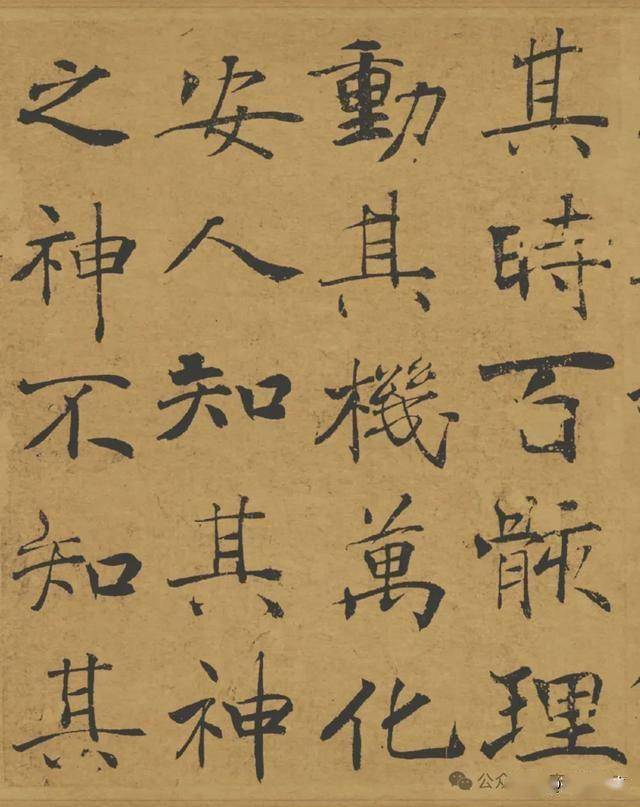 其時百骸理
動其機萬化
安人知其神
之神不知其
公众